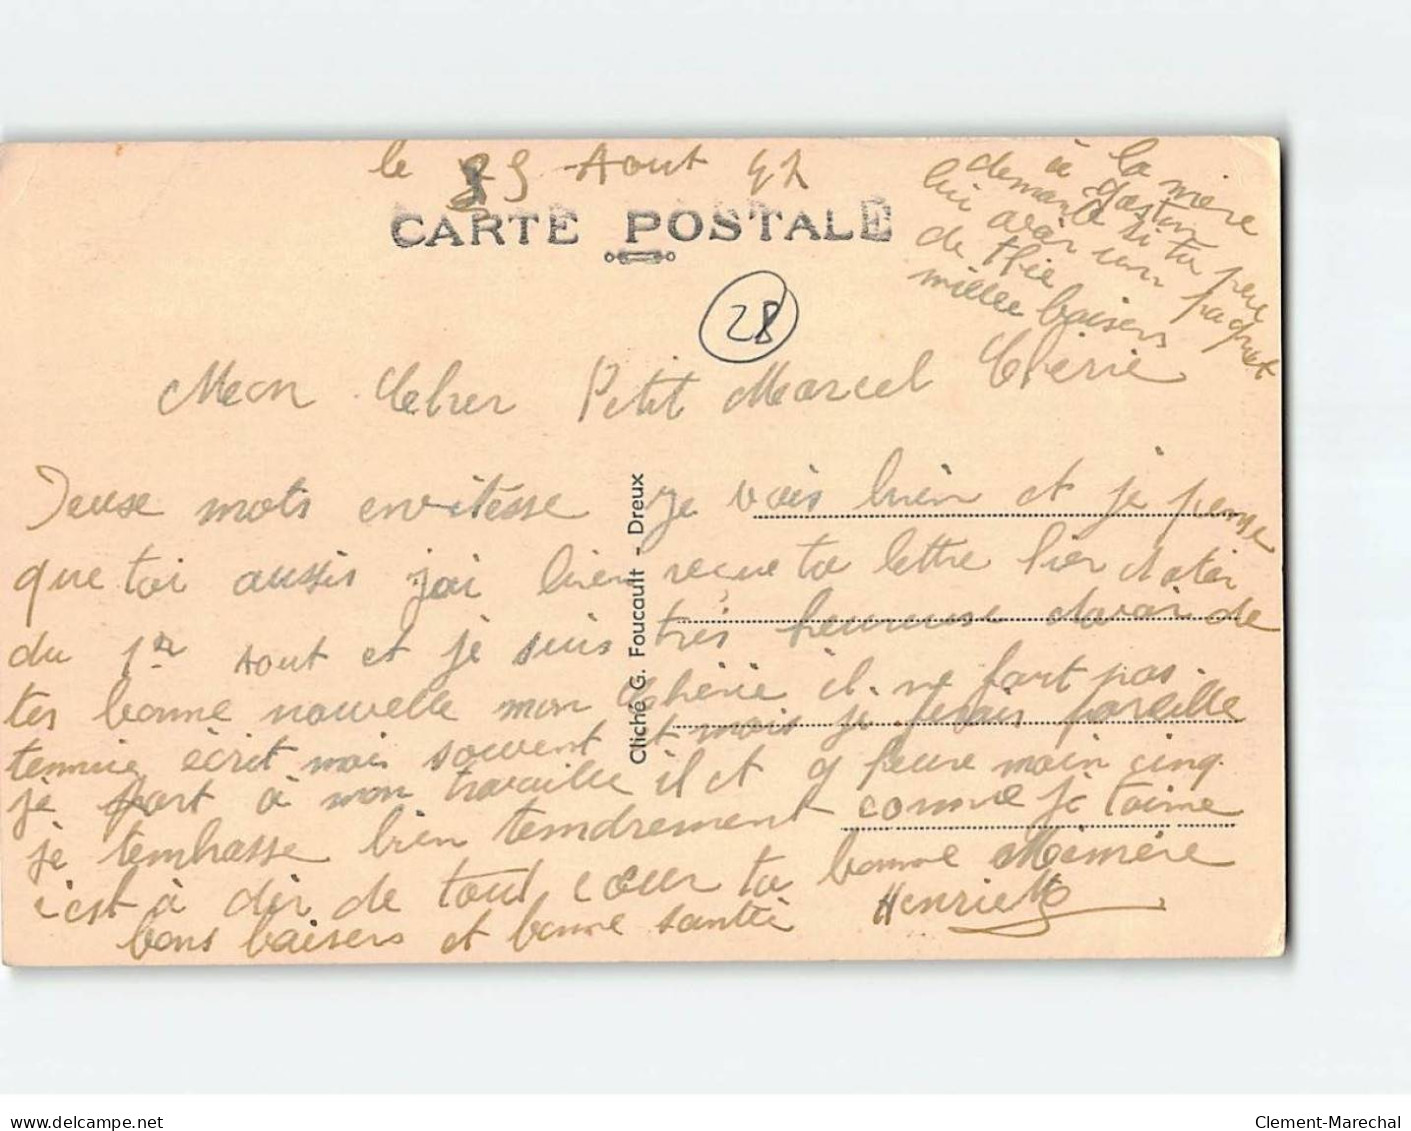 le 25 Aout 42
CARTE POSTALE
à la mère
à gaston
demande si tu peu
lui avoir un paquet
de thie
mille baisers
28
Mon Cher Petit Marcel Chérie
Deuse mots envitèsse je vais bien et je pense
que toi aussis j'ai bien reçue ta lettre hier dater
du 1er Aout et je suis très heureuse d'avoir de
tes bonne nouvelle mon Chérie il ne faut pas
tennuie écrit moi souvent et mois je ferais pareille
je part à mon travaille il et 9 heure moin cinq
je tembrasse bien tendrement comme je taime
c'est à dir de tout cœur ta bonne Mémère
bons baisers et bonne santé Henriette
Cliché G. Foucault - Dreux
www.delcampe.net
Clement-Marechal